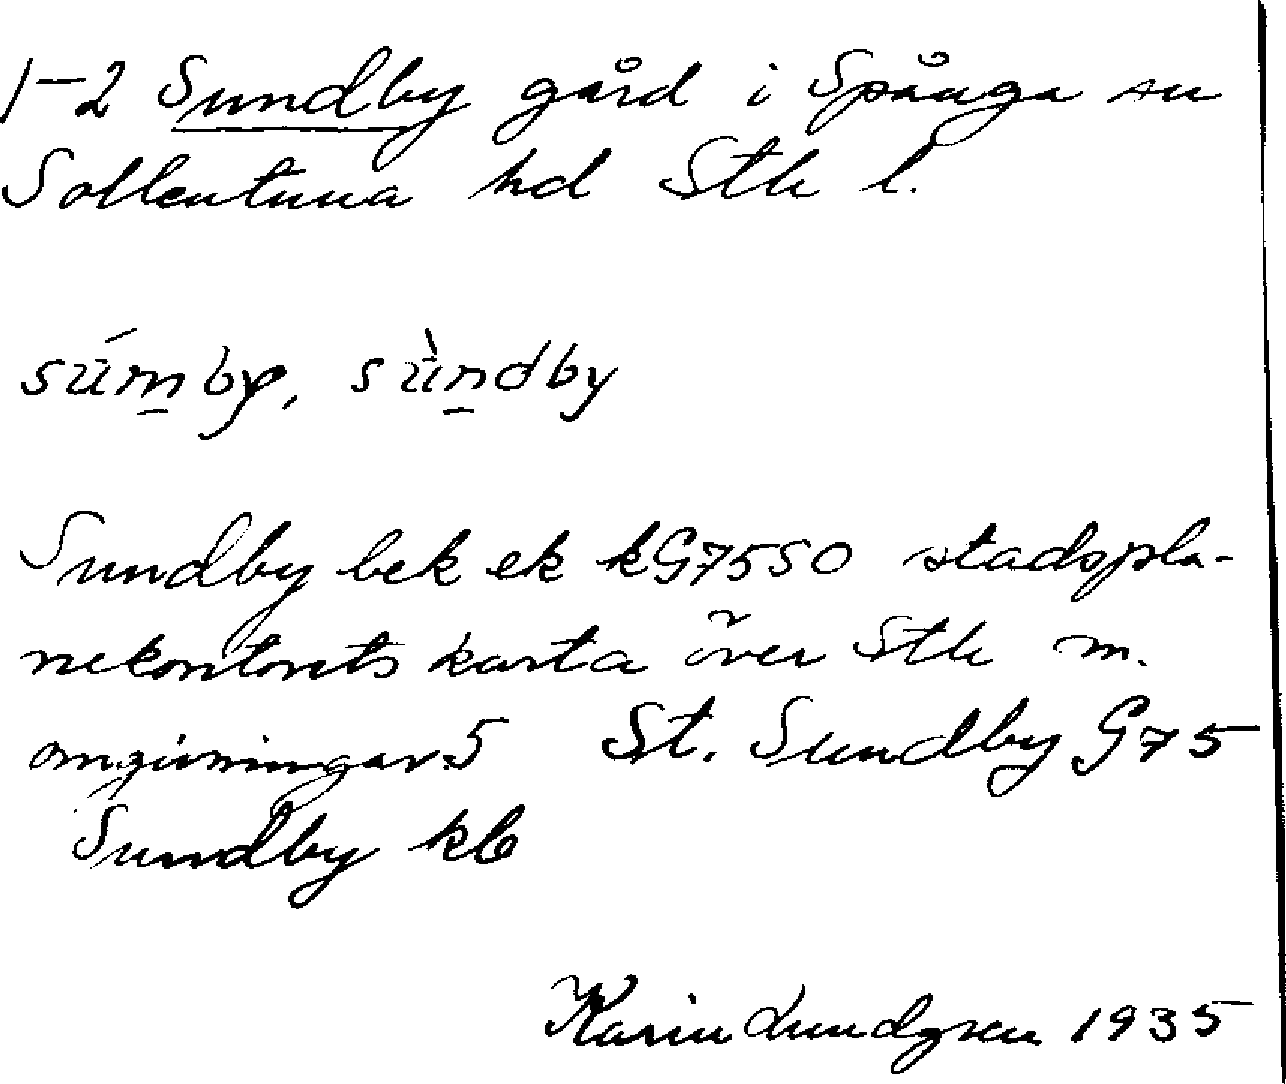 1-2 Sundby gård i Spånga sn
Sollentuna hd Sthl l.
súm̲by, sùn̲dby
Sundby bek ek kG75SO stadspla-
nekontorets karta över Sthl m.
omgivningar.5 St. Sundby G75
Sundby kb
Karin Lundgren 1935